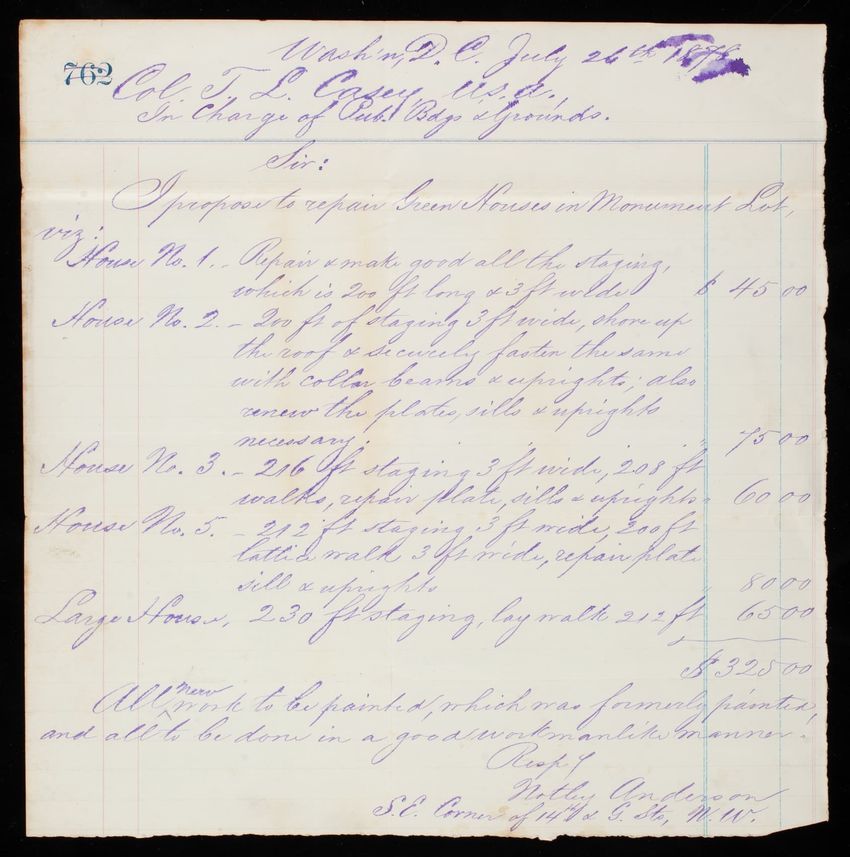 Wash'n, D. C. July 26th 1878
762
Col. T. L. Casey, U.S.A.,
In Charge of Pub. Bdgs & Grounds.
Sir:
I propose to repair Green Houses in Monument Lot,
viz:
House No. 1. - Repair & make good all the staging,
which is 200 ft long & 3 ft wide $ 45 00
House No. 2. - 200 ft of staging 3 ft wide, shore up
the roof & securely fasten the same
with collar beams & uprights; also
renew the plates, sills & uprights
necessary. " " " 75 00
House No. 3. - 216 ft staging 3 ft wide, 208 ft
walks, repair plate, sills & uprights " 60 00
House No. 5. - 212 ft staging 3 ft wide, 200 ft
lattice walk 3 ft wide, repair plate
sill & uprights " 80 00
Large House, 230 ft staging, lay walk 212 ft 65 00
$ 325 00
All new work to be painted, which was formerly painted,
and all to be done in a good workmanlike manner.
Respy
Notley Anderson
S.E. Corner of 14th & G. Sts, N. W.